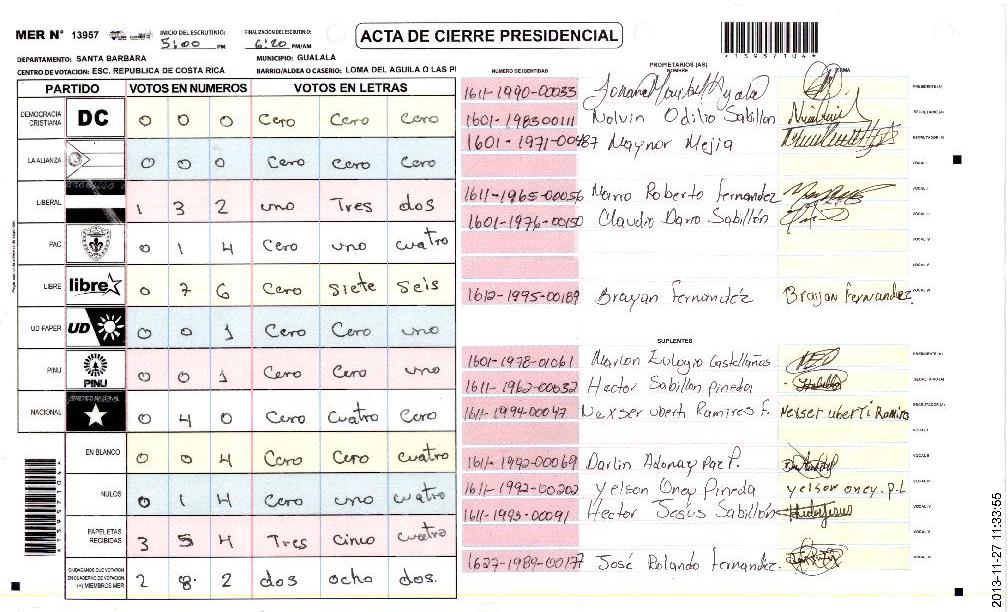 MER N° 13957 INICIO DEL ESCRUTINIO: 5:00 PM FINALIZACION DEL ESCRUTINIO: 6:20 PM/AM
ACTA DE CIERRE PRESIDENCIAL
DEPARTAMENTO: SANTA BARBARA MUNICIPIO: GUALALA
CENTRO DE VOTACION: ESC. REPUBLICA DE COSTA RICA BARRIO/ALDEA O CASERIO: LOMA DEL AGUILA O LAS PI
PARTIDO VOTOS EN NUMEROS VOTOS EN LETRAS
DEMOCRACIA CRISTIANA DC 0 0 0 Cero Cero Cero
LA ALIANZA 0 0 0 Cero Cero Cero
LIBERAL 1 3 2 uno Tres dos
PAC 0 1 4 Cero uno cuatro
LIBRE libre 0 7 6 Cero Siete Seis
UD FAPER UD 0 0 1 Cero Cero uno
PINU PINU 0 0 1 Cero Cero uno
NACIONAL 0 4 0 Cero Cuatro Cero
EN BLANCO 0 0 4 Cero Cero Cuatro
NULOS 0 1 4 Cero uno cuatro
PAPELETAS RECIBIDAS 3 5 4 Tres Cinco cuatro
CIUDADANOS QUE VOTARON EN CUADERNO DE VOTACION (+) MIEMBROS MER 2 8 2 dos ocho dos.
PROPIETARIOS (AS)
NUMERO DE IDENTIDAD NOMBRE FIRMA
1611-1990-00033 PRESIDENTE (A)
1601-198300111 Nolvin Odilio Sabillon SECRETARIO (A)
1601-1971-00487 Maynor Mejia ESCRUTADOR (A)
VOCAL I
1611-1965-00056 Mario Roberto Fernandez VOCAL II
1601-1976-00150 Claudio Dario Sabillón VOCAL III
VOCAL IV
VOCAL V
1612-1995-00189 Brayan Fernandéz Brayan Fernandez VOCAL VI
SUPLENTES
1601-1978-01061 Marlon Eulogio Castellanos PRESIDENTE (A)
1611-1962-00032 Hector Sabillon Pineda SECRETARIO (A)
1611-1994-00047 Nexser uberti Ramires F. Nexser uberti Ramires ESCRUTADOR (A)
VOCAL I
1611-1992-00069 Darlin Adonay Paz P. VOCAL II
1611-1992-00202 Yelson Oney Pineda yelson oney. P.L VOCAL III
1611-1993-00091 Hector Jesús Sabillón VOCAL IV
VOCAL V
1627-1989-00177 José Rolando Fernandez. VOCAL VI
2013-11-27 11:33:55